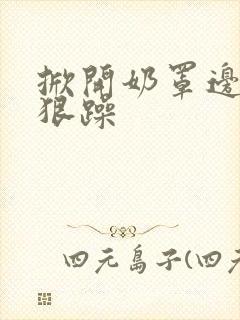 掀開奶罩邊
狠躁
四元島子(四元